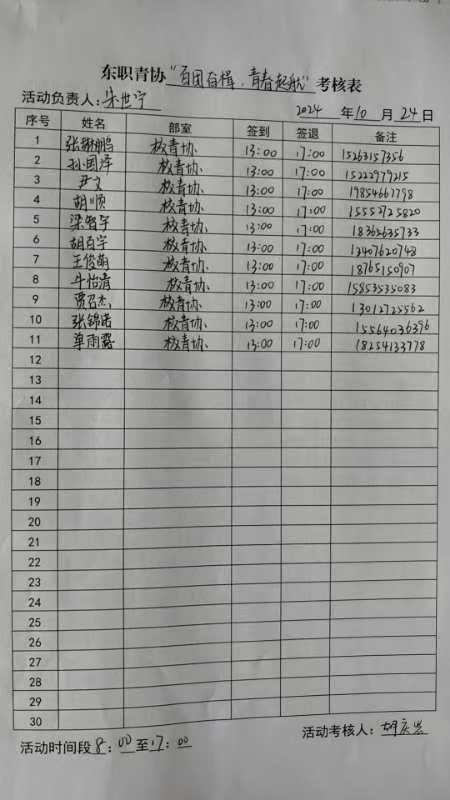 东职青协“百团百楫,青春起航”考核表
活动负责人:朱世宁 2024 年10 月 24日
序号 姓名 部室 签到 签退 备注
1 张翀鹏 校青协 13:00 17:00 15263157356
2 孙国洋 校青协 13:00 17:00 15222979215
3 尹文 校青协 13:00 17:00 19854667798
4 胡顺 校青协 13:00 17:00 15552725820
5 梁智宇 校青协 13:00 17:00 18362635733
6 胡百宇 校青协 13:00 17:00 13407620748
7 王俊萌 校青协 13:00 17:00 18765150907
8 斗怡清 校青协 13:00 17:00 15853535083
9 贾召杰 校青协 13:00 17:00 13012725562
10 张锦诺 校青协 13:00 17:00 15564036396
11 单雨露 校青协 13:00 17:00 18254133778
12
13
14
15
16
17
18
19
20
21
22
23
24
25
26
27
28
29
30
活动时间段 8:00 至 17:00 活动考核人:胡庆